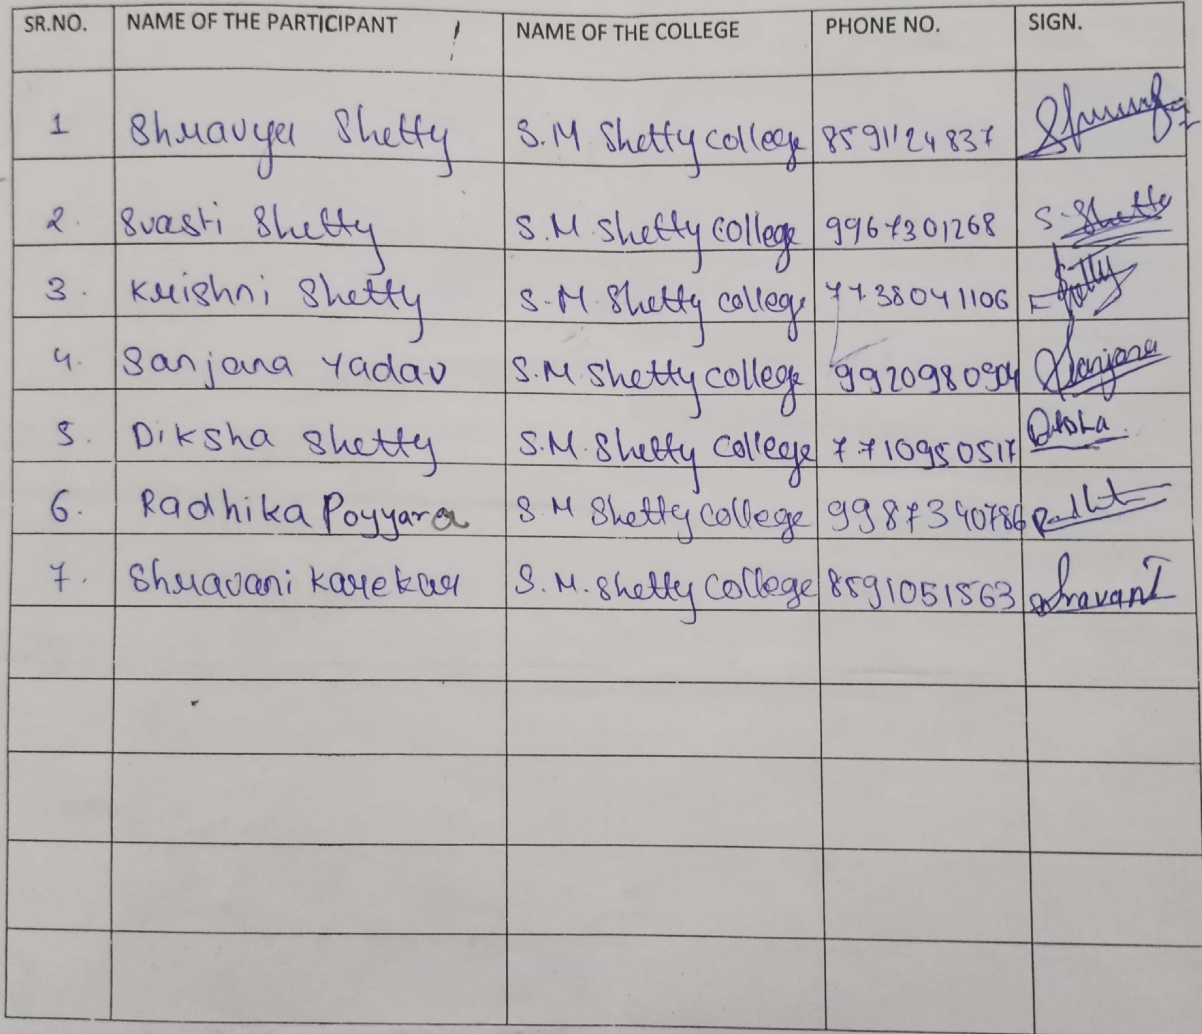 SR.NO. NAME OF THE PARTICIPANT NAME OF THE COLLEGE PHONE NO. SIGN.
1 Shravya Shetty S.M. Shetty college 8591124837
2. Svasti Shetty S.M. Shetty college 9967301268 S. Shetty
3. Krishni Shetty S.M. Shetty college 7738041106 Shetty
4. Sanjana Yadav S.M. Shetty college 9920980904 Sanjana
5. Diksha Shetty S.M. Shetty college 7710950517 Diksha
6. Radhika Poyyara S.M Shetty college 9987340786
7. Shravani Karekar S.M. Shetty college 8591051563 Shravani